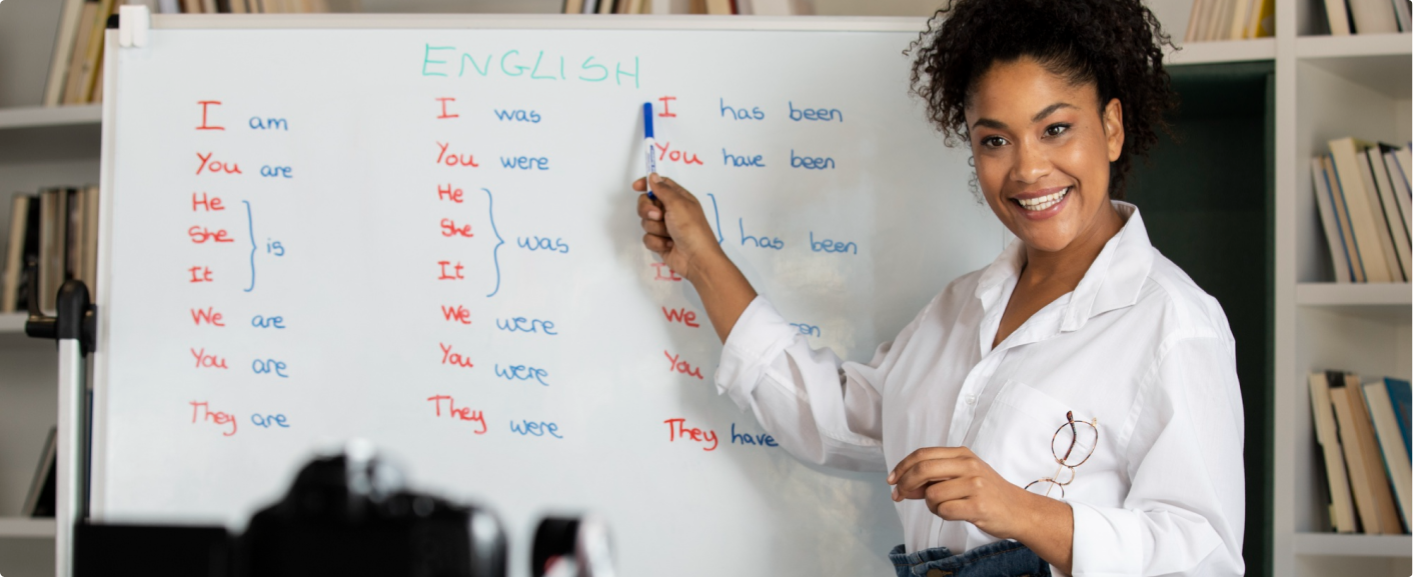 ENGLISH
I am
You are
He
She
is
It
We are
You are
They are
I was
You were
He
She
was
It
We were
You were
They were
I has been
You have been
has been
It
We
You
They have